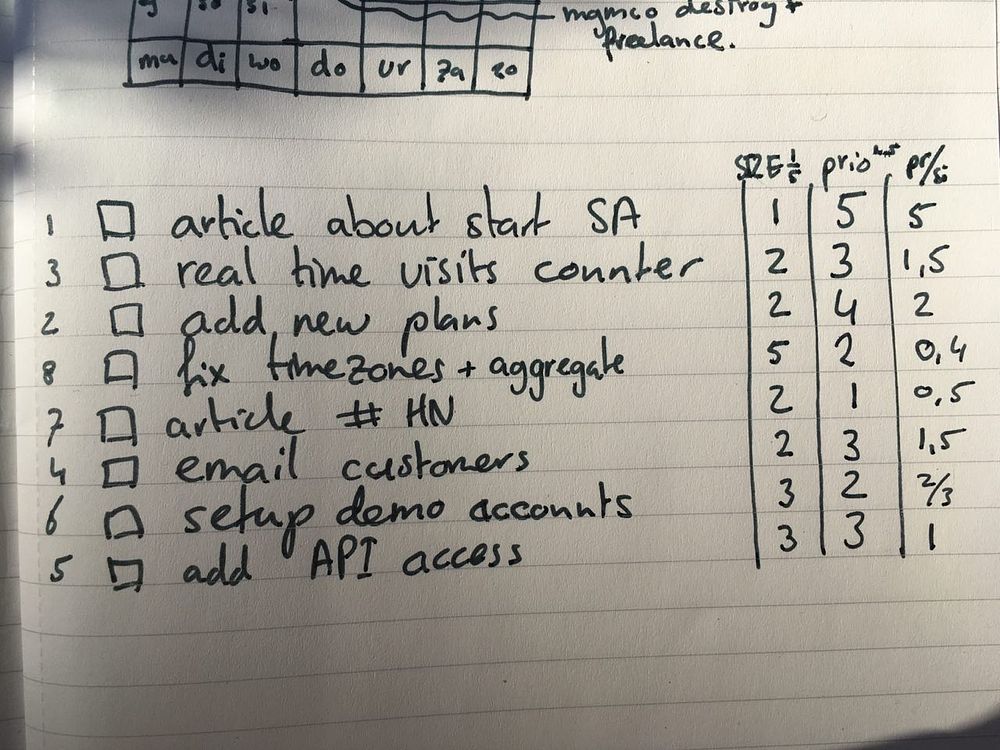 mgmco destroy +
freelance.
ma di wo do vr za zo
SIZE 1/5 prio pr/si
1 □ article about start SA 1 5 5
3 □ real time visits counter 2 3 1,5
2 □ add new plans 2 4 2
8 □ fix timezones + aggregate 5 2 0,4
7 □ article # HN 2 1 0,5
4 □ email customers 2 3 1,5
6 □ setup demo accounts 3 2 2/3
5 □ add API access 3 3 1